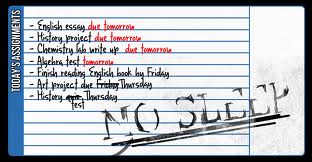 TODAY'S ASSIGNMENTS
- English essay due tomorrow
- History project due tomorrow
- Chemistry lab write up due tomorrow
- Algebra test tomorrow
- Finish reading English book by Friday
- Art project due Friday Thursday
- History quiz Thursday
test
NO SLEEP